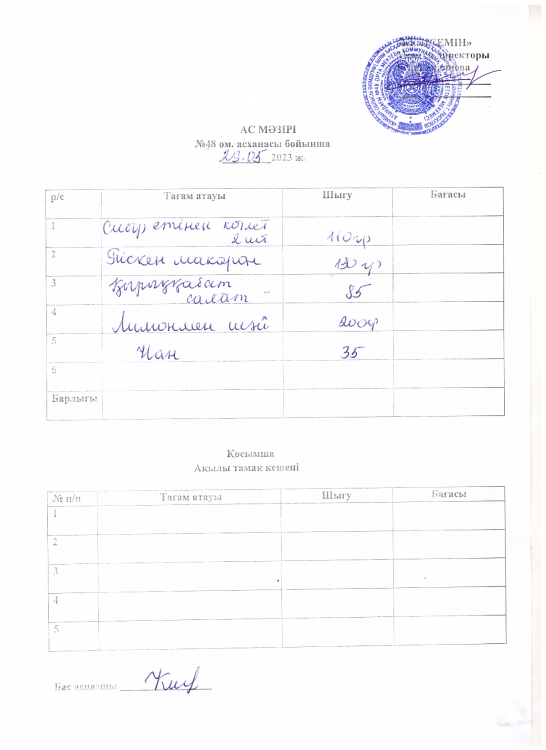 директоры
АС МӘЗІРІ
№48 ом. асханасы бойынша
29.05 2023 ж.
р/с Тағам атауы Шығу Бағасы
1 Сиыр етінен котлет 2 шт 110 гр
2 Піскен макарон 130 гр
3 Қырыққабат салат 85
4 Лимонмен шәй 200 гр
5 Нан 35
6
Барлығы
Қосымша
Ақылы тамақ кешені
№ п/п Тағам атауы Шығу Бағасы
1
2
3
4
5
Бас аспазшы